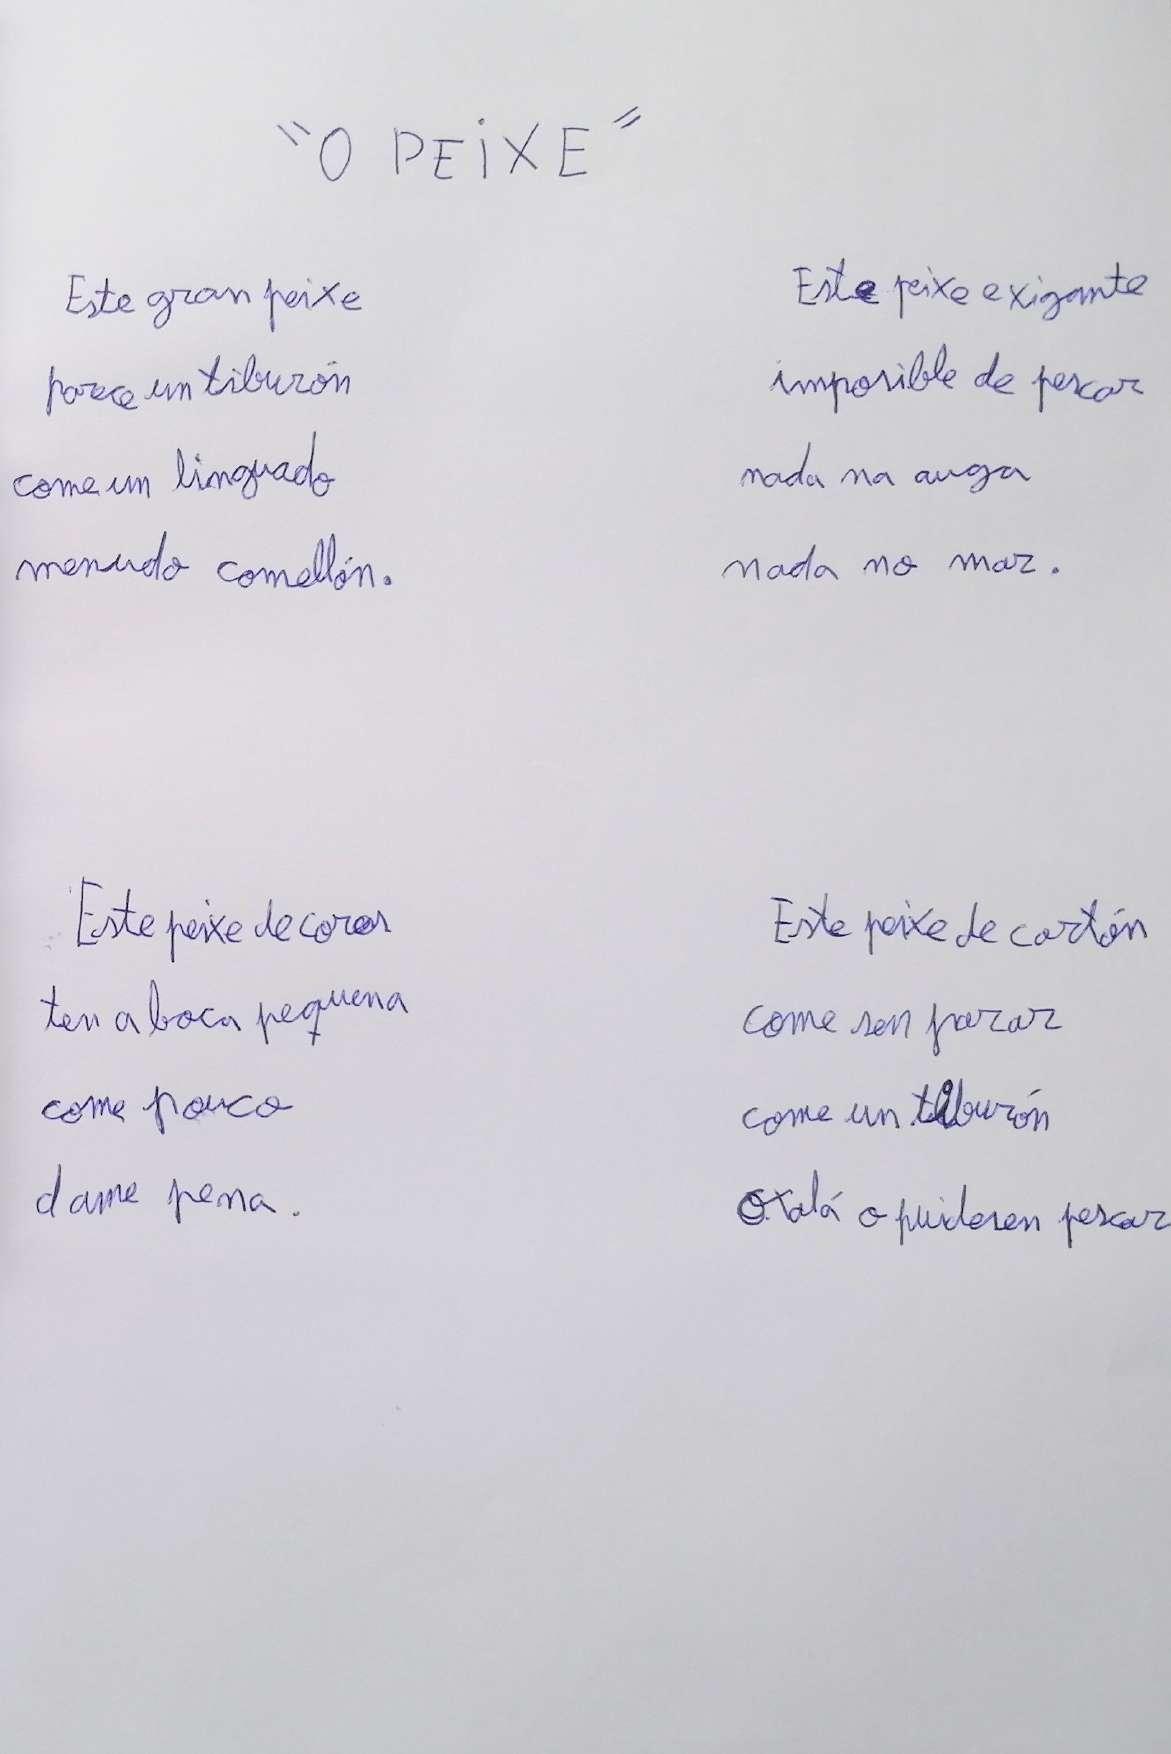 "O PEiXE"
Este gran peixe
parece un tiburón
come un linguado
menudo comellón.
Este peixe exigante
imposible de pescar
nada na auga
nada no mar.
Este peixe de cores
ten a boca pequena
come pouco
dame pena.
Este peixe de cartón
come sen parar
come un tiburón
Oxalá o puideren pescar